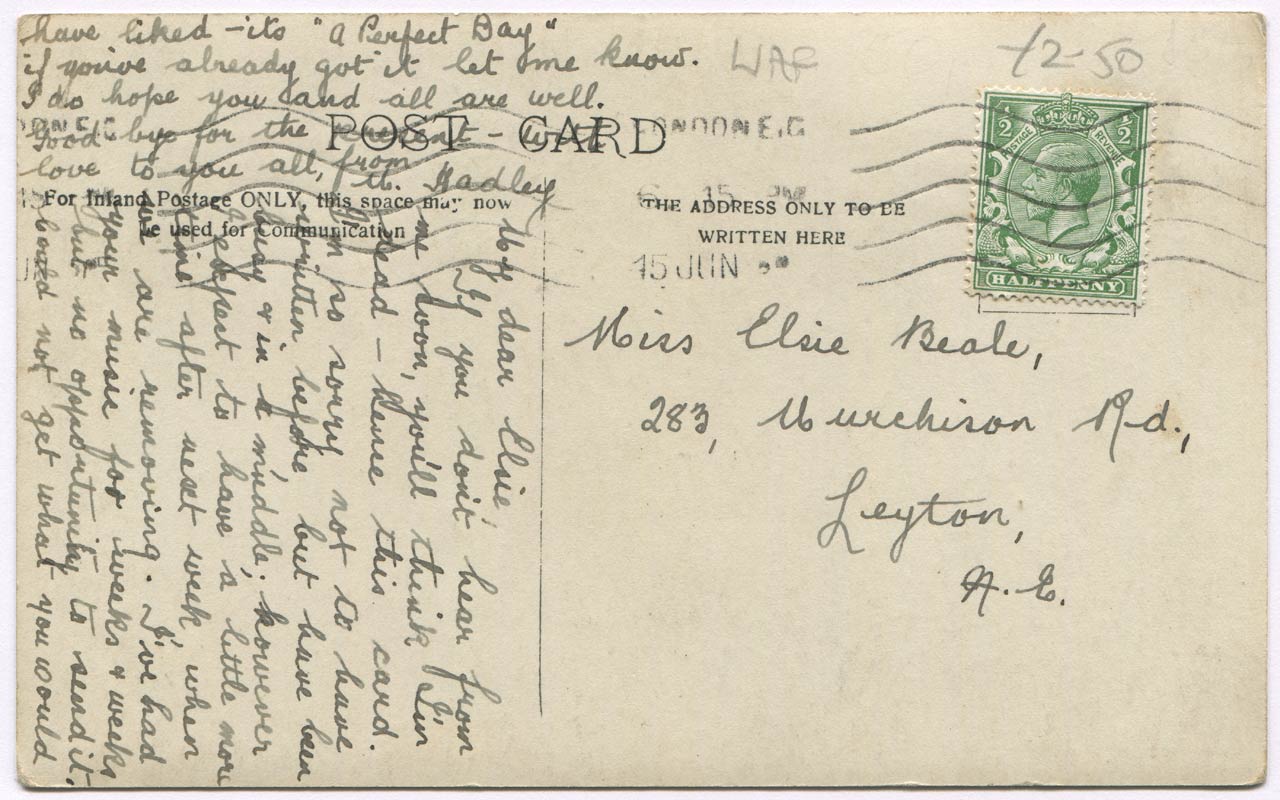 POST CARD
For Inland Postage ONLY, this space may now
be used for Communication
THE ADDRESS ONLY TO BE
WRITTEN HERE
LONDON E.C
6 15 PM
15 JUN
WAF
12-50
1/2
1/2
POSTAGE
REVENUE
HALFPENNY
Miss Elsie Beale,
283, Murchison Rd.,
Leyton,
N.E.
My dear Elsie,
If you don't hear from
me soon, you'll think I'm
dead - hence this card.
I'm so sorry not to have
written before but have been
busy & in a muddle. however
I expect to have a little more
time after next week, when
we are removing. I've had
your music for weeks & weeks
but no opportunity to send it.
Could not get what you would
have liked - its "A Perfect Day"
if you've already got it let me know.
I do hope you and all are well.
Good bye for the present - with
love to you all, from
M. Hadley